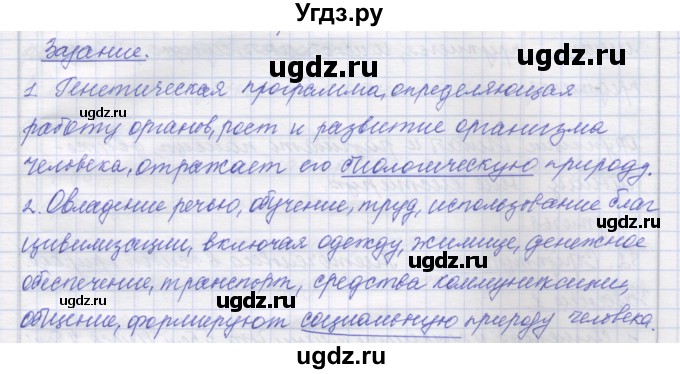 Угдз.ру
Задание.
1. Генетическая программа, определяющая
работу органов, рост и развитие организма
человека, отражает его биологическую природу.
2. Овладение речью, обучение, труд, использование благ
цивилизации, включая одежду, жилище, денежное
обеспечение, транспорт, средства коммуникации,
общение, формируют социальную природу человека.
ugdz.ru
ugdz.ru
ugdz.ru
ugdz.ru
ugdz.ru
ugdz.ru
ugdz.ru
ugdz.ru
ugdz.ru
ugdz.ru
ugdz.ru
ugdz.ru
ugdz.ru